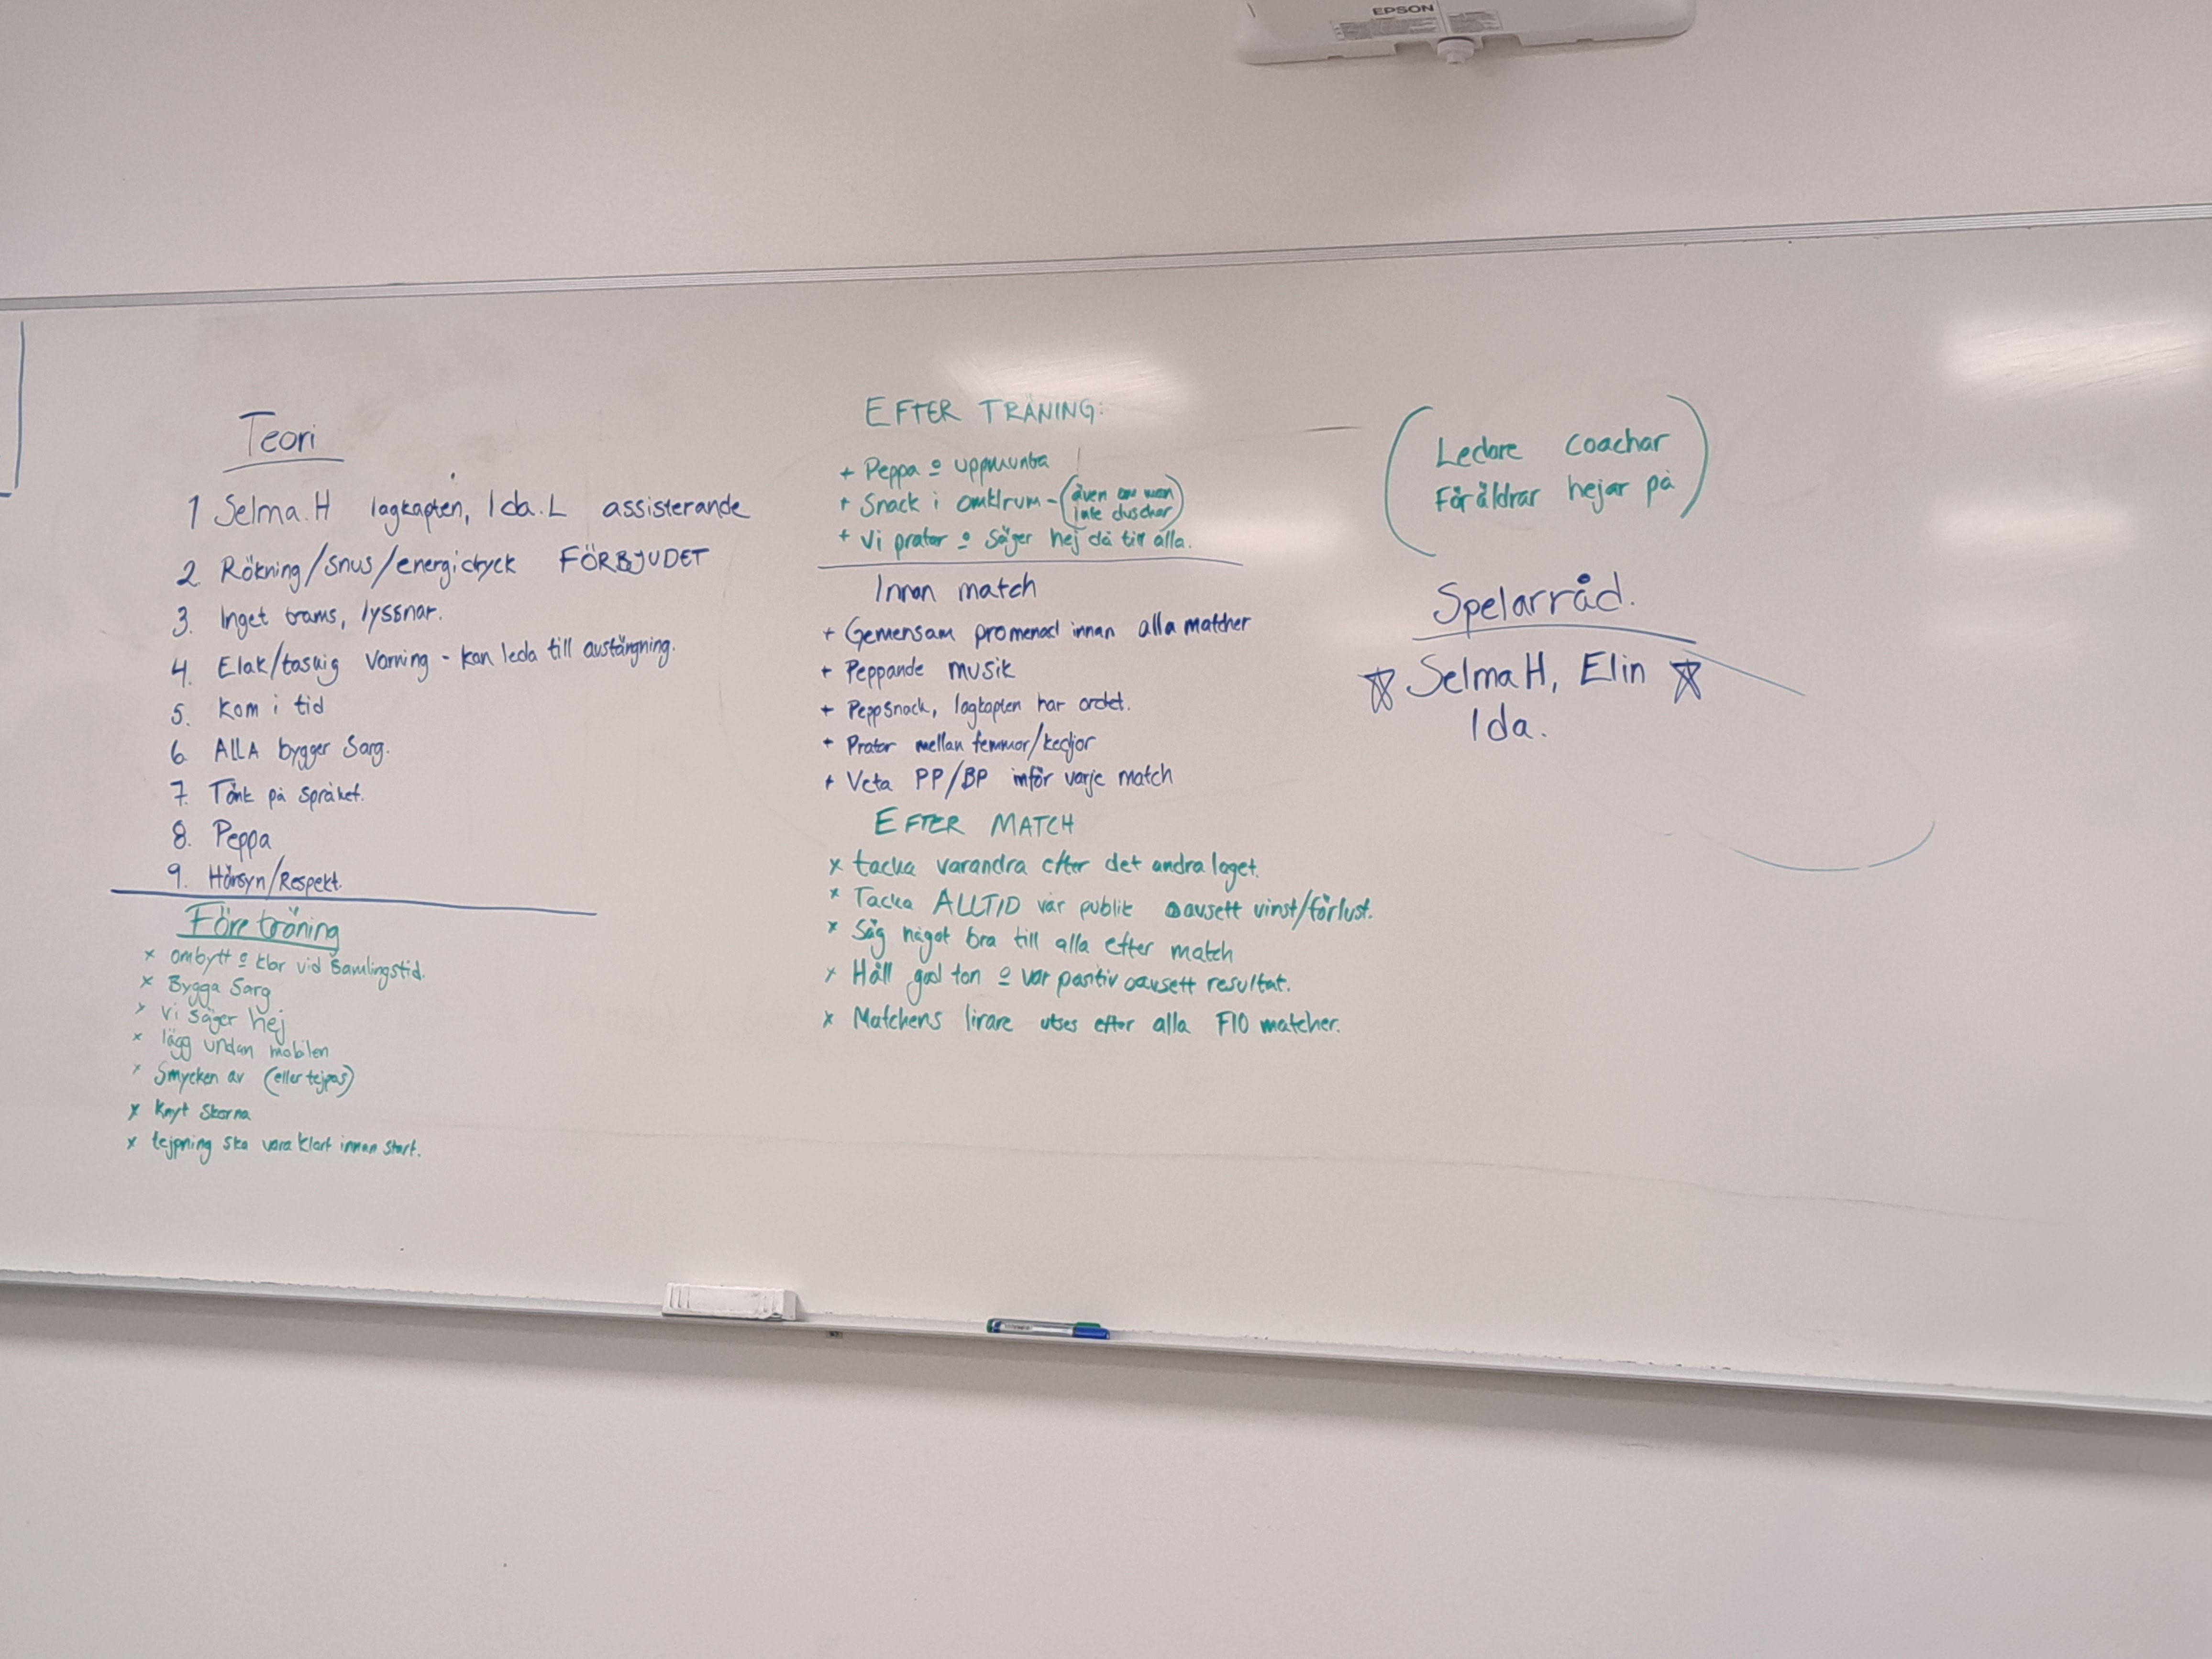 EPSON
Teori
1 Selma.H lagkapten, Ida.L assisterande
2 Rökning/snus/energidryck FÖRBJUDET
3. Inget trams, lyssnar.
4. Elak/taskig Varning - kan leda till avstängning.
5. Kom i tid
6. ALLA bygger Sarg.
7. Tänk på språket.
8. Peppa
9. Hänsyn/Respekt.
Före träning
x ombytt o klar vid samlingstid.
x Bygga Sarg
x vi säger hej
x lägg undan mobilen
x Smycken av (eller tejpas)
x Knyt skorna
x tejpning ska vara klart innan start.
EFTER TRÄNING:
+ Peppa o uppmuntra
+ Snack i omklrum - (även om man
inte duschar)
+ Vi pratar o säger hej då till alla.
Innan match
+ Gemensam promenad innan alla matcher
+ Peppande musik
+ Peppsnack, lagkapten har ordet.
+ Pratar mellan femmor/kedjor
+ Veta PP/BP inför varje match
EFTER MATCH
x tacka varandra efter det andra laget.
x Tacka ALLTID vår publik oavsett vinst/förlust.
x Säg något bra till alla efter match
x Håll god ton o var positiv oavsett resultat.
x Matchens lirare utses efter alla F10 matcher.
(Ledare coachar
Föräldrar hejar på)
Spelarråd.
☆ Selma H, Elin ☆
Ida.